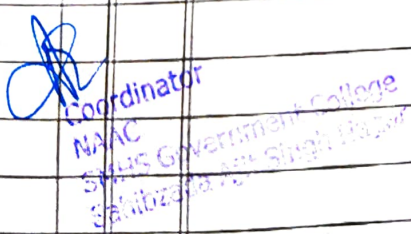 Coordinator
NAAC
SMHS Government College
Sahibzada Ajit Singh Nagar